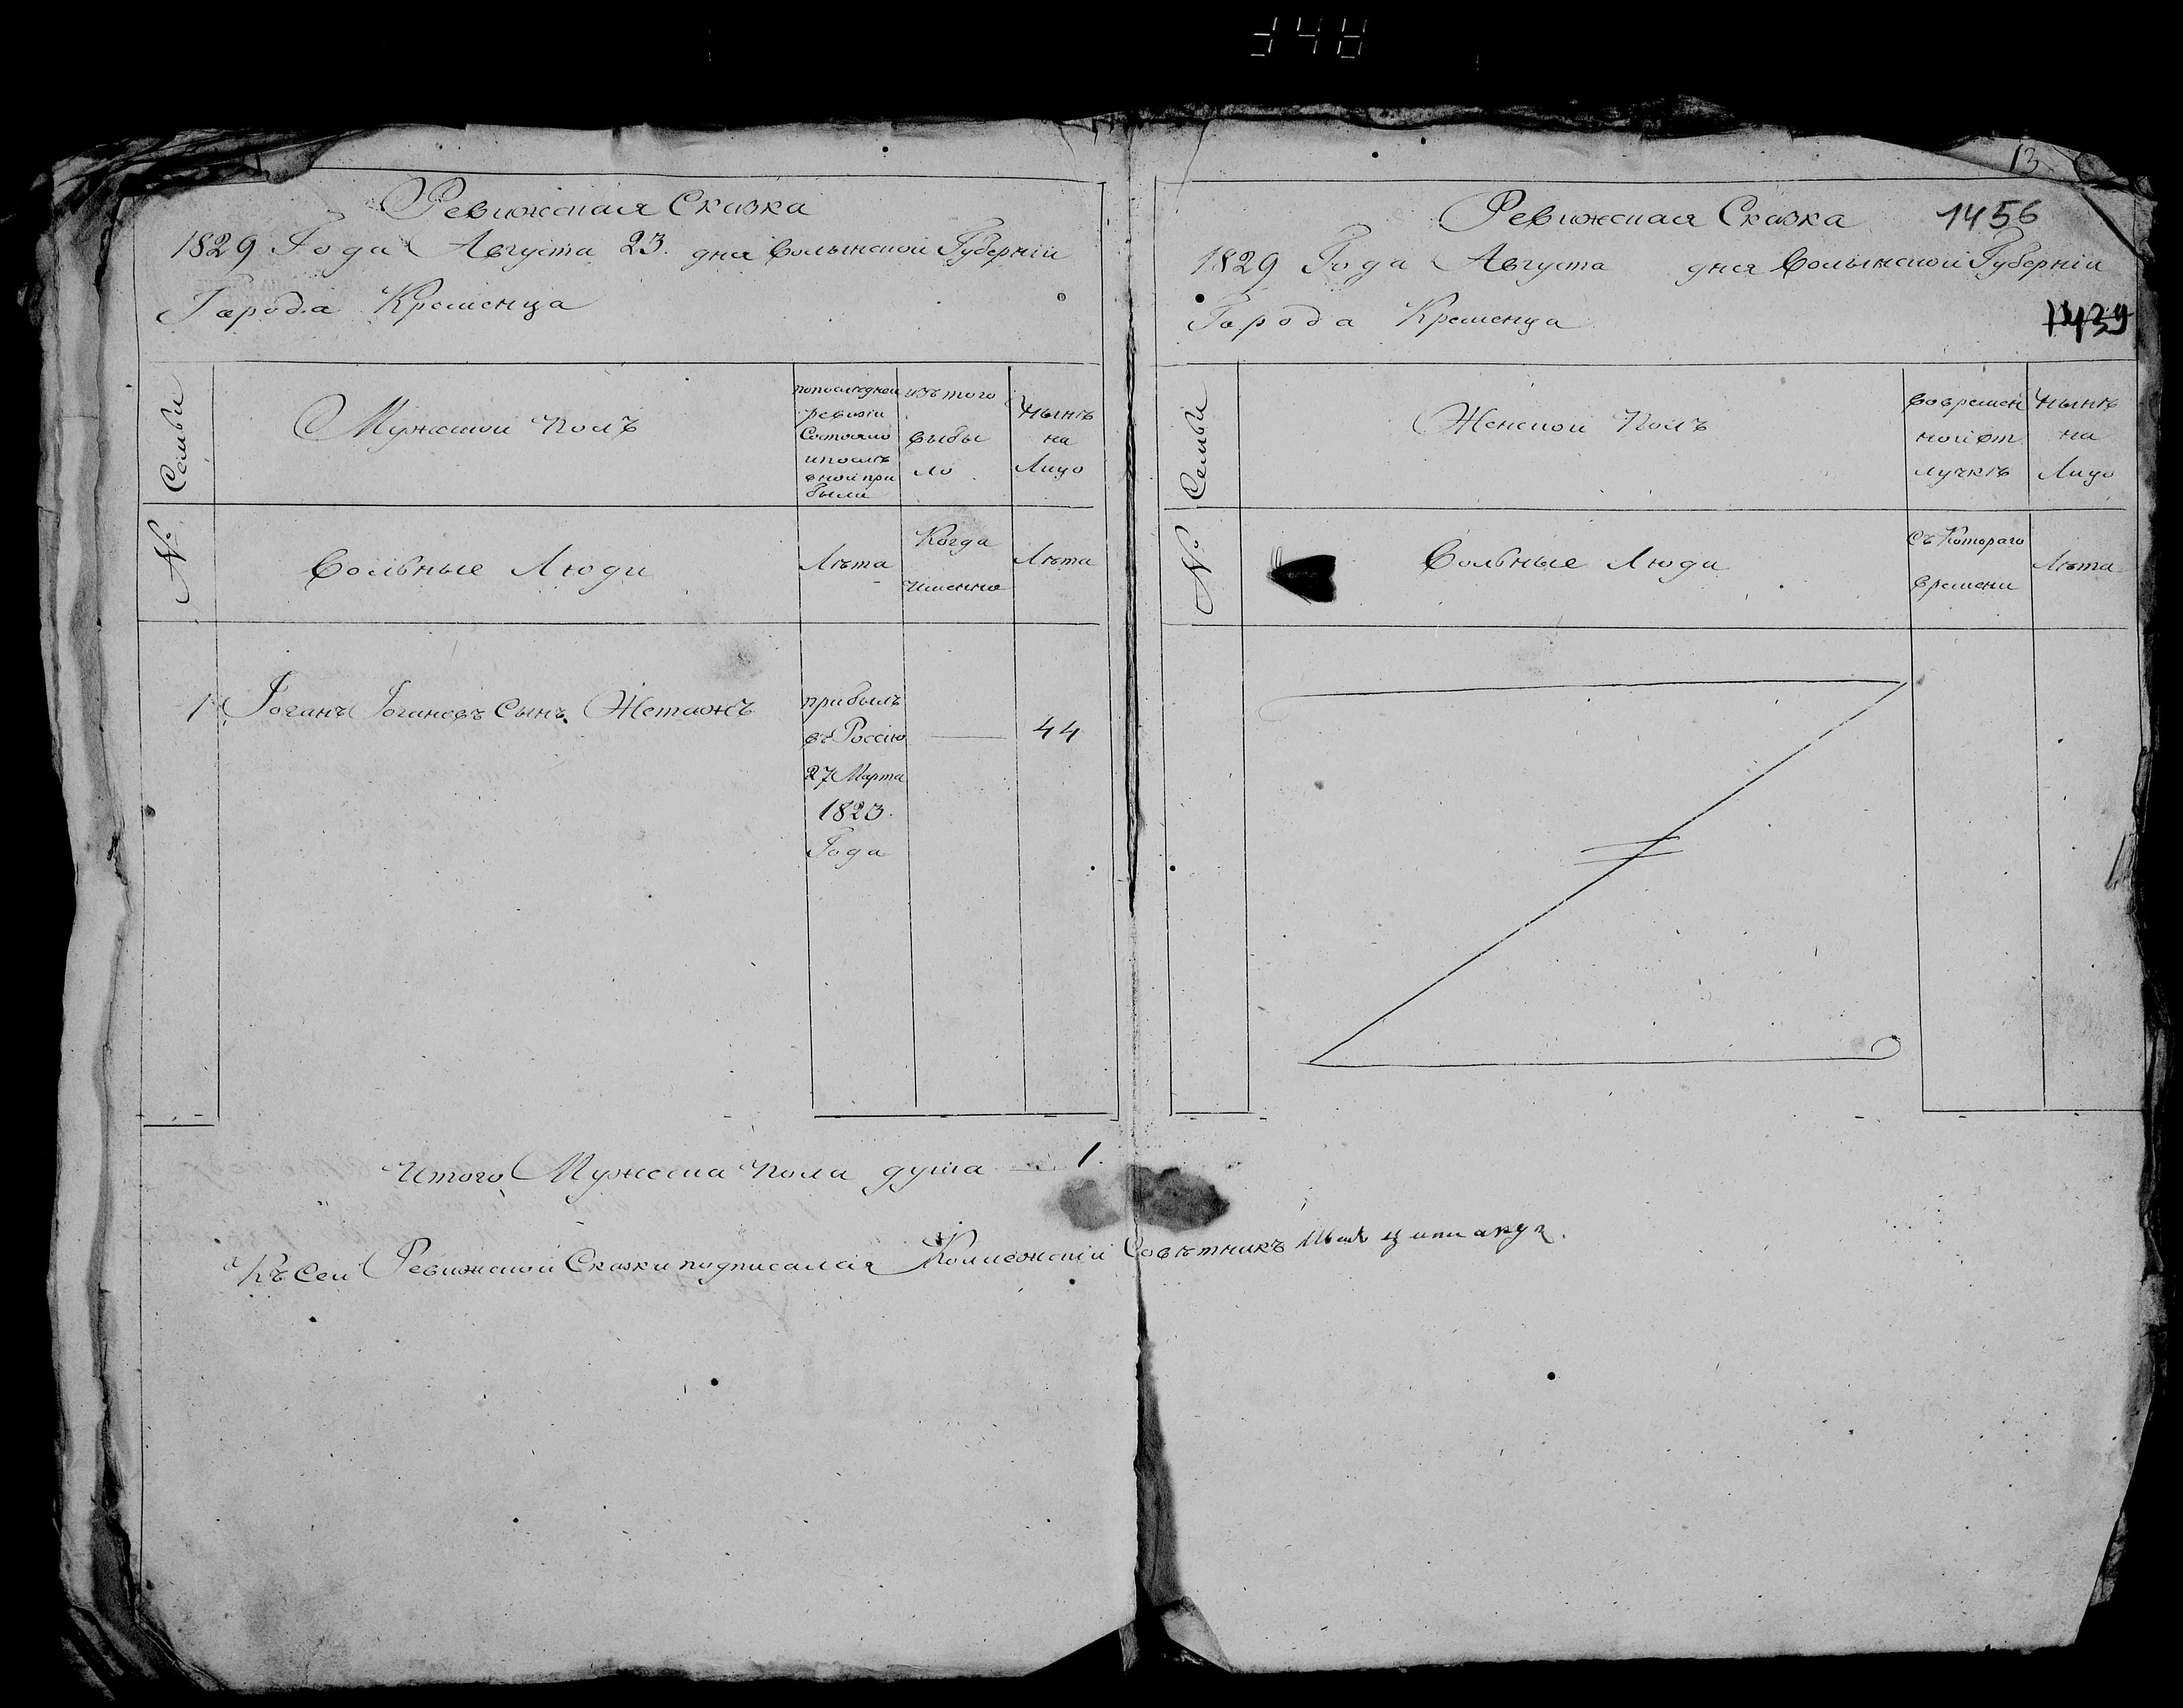 348
Ревижская Сказка
1829 Года Августа 23. дня Волынской Губерніи
Города Кременца
Семьи
Мужской полъ
попоследней
ревизіи
Состояло
ипослѣ
оной при
были
изъ того
выбы
ло
Нынѣ
на
Лицо
№
Вольные Люди
Лѣта
Когда
именно
Лѣта
1 Іоганъ Іогановъ Сынъ
прибылъ
въ Россію
27 Марта
1823.
Года
44
Итого Мужеска пола душа 1.
Къ Сей Ревижской Сказки подписался Колежскій Совѣтникъ
13
Ревижская Сказка 1456
1829 Года Августа дня Волынской Губерніи
Города Кременца
1439
Семьи
Женской Полъ
Вовремен
ной от
лучкѣ
Нынѣ
на
Лицо
№
Вольные Люди
Съ Котораго
времени
Лѣта